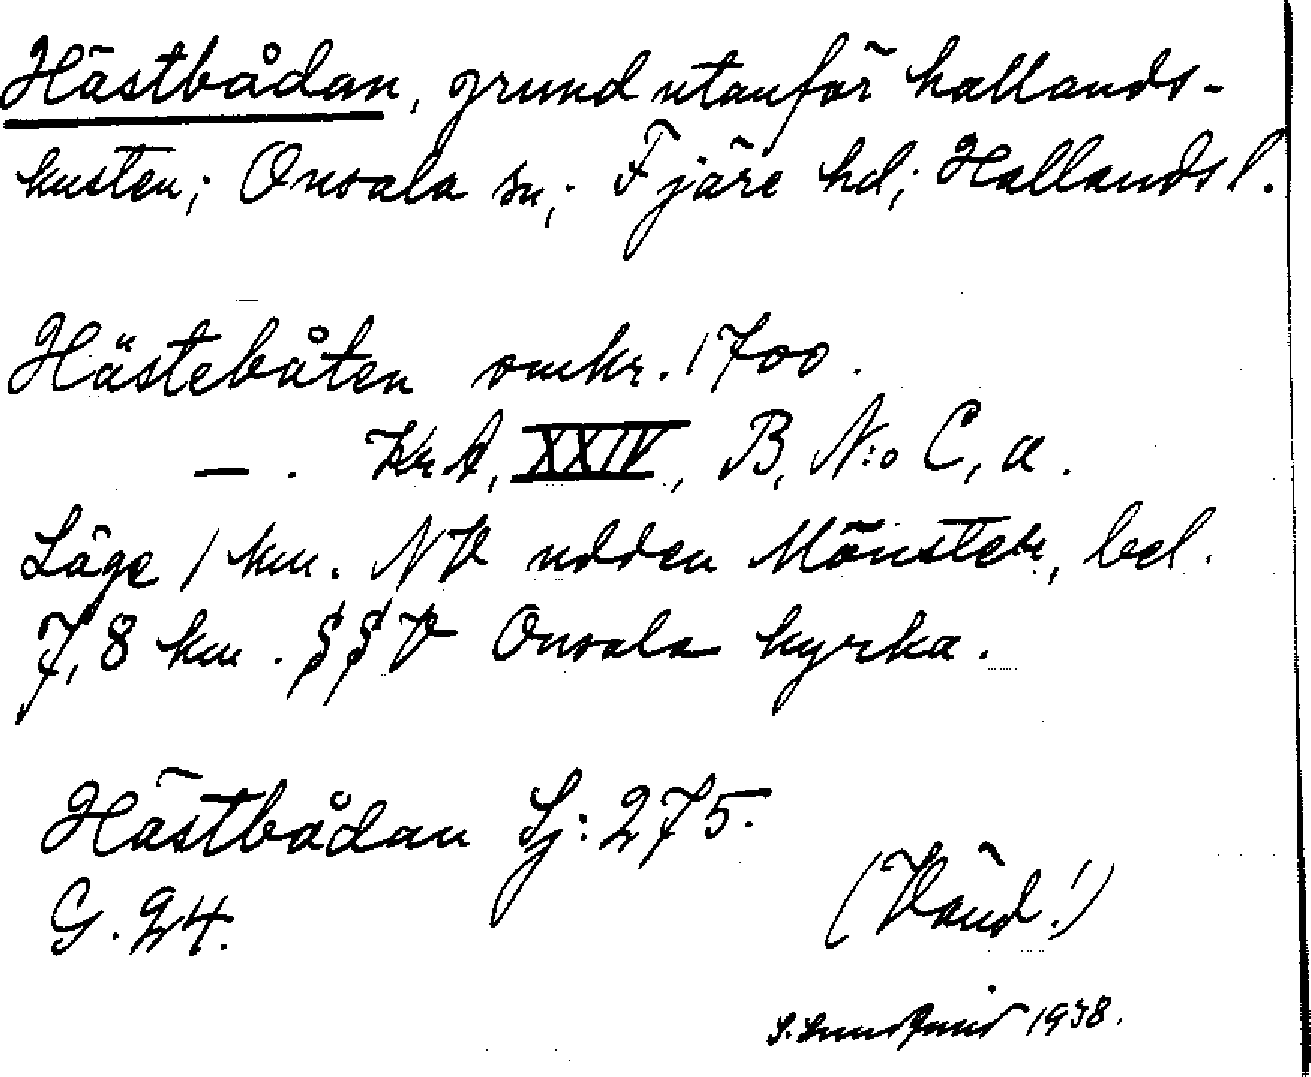 Hästbådan, grund utanför hallands-
kusten; Onsala sn; Fjäre hd; Hallands l.
Hästebåten omkr. 1700.
— . KrA, XXIV, B, N:o C, a.
Läge 1 km. NV udden Mönster, bel.
7,8 km. SSV Onsala kyrka.
Hästbådan Sj: 275.
G. 24.
(Vänd!)
1938.